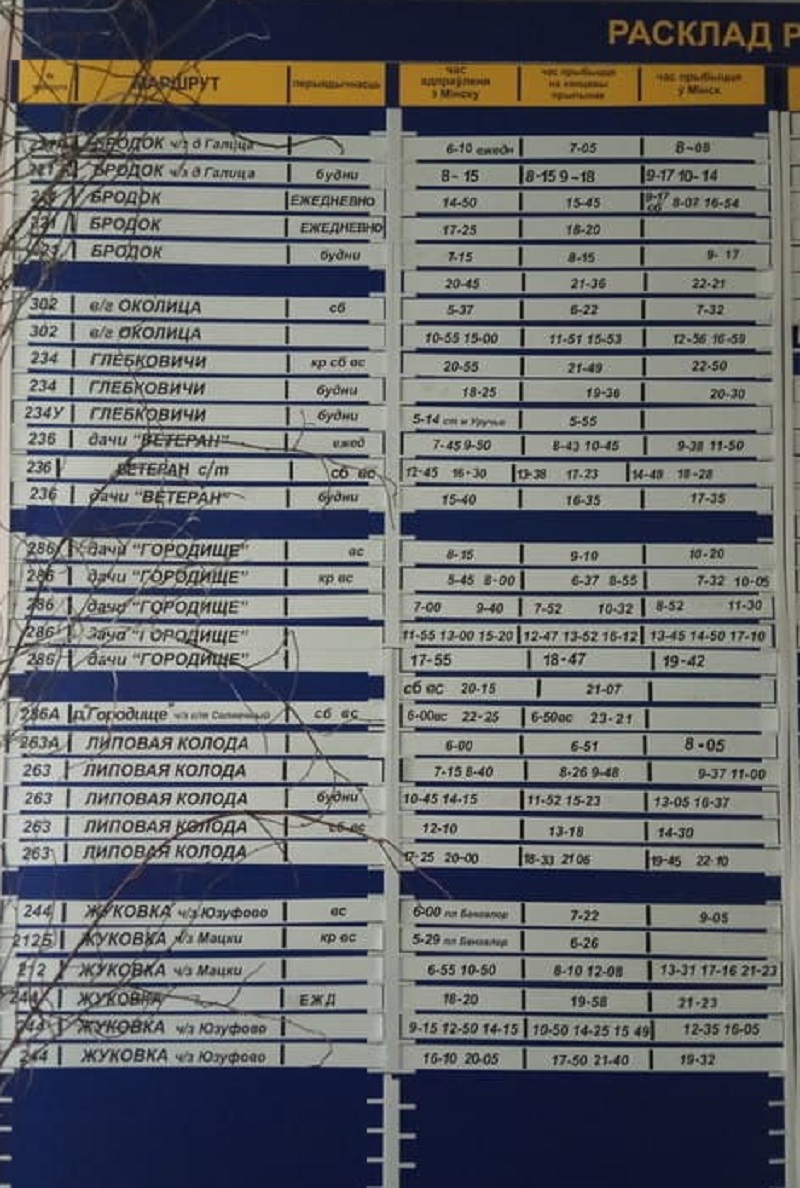 РАСКЛАД Р
№ МАРШРУТ перыядычнасць час адпраўлення з Мінску час прыбыцця на канцавы прыпынак час прыбыцця ў Мінск
БРОДОК ч/з д Галица 6-10 ежедн 7-05 8-05
БРОДОК ч/з д Галица будни 8-15 8-15 9-18 9-17 10-14
БРОДОК ЕЖЕДНЕВНО 14-50 15-45 8-17 сб 8-07 16-54
БРОДОК ЕЖЕДНЕВНО 17-25 18-20
БРОДОК будни 7-15 8-15 9-17
20-45 21-36 22-21
302 в/г ОКОЛИЦА сб 5-37 6-22 7-32
302 в/г ОКОЛИЦА 10-55 15-00 11-51 15-53 12-56 16-59
234 ГЛЕБКОВИЧИ кр сб вс 20-55 21-49 22-50
234 ГЛЕБКОВИЧИ будни 18-25 19-36 20-30
234У ГЛЕБКОВИЧИ будни 5-14 ст м Уручье 5-55
236 дачи "ВЕТЕРАН" ежед 7-45 9-50 8-43 10-45 9-38 11-50
236 ВЕТЕРАН с/т сб вс 12-45 16-30 13-38 17-23 14-48 18-28
236 дачи "ВЕТЕРАН" будни 15-40 16-35 17-35
286 дачи "ГОРОДИЩЕ" вс 8-15 9-10 10-20
286 дачи "ГОРОДИЩЕ" кр вс 5-45 8-00 6-37 8-55 7-32 10-05
286 дачи "ГОРОДИЩЕ" 7-00 9-40 7-52 10-32 8-52 11-30
286 дачи "ГОРОДИЩЕ" 11-55 13-00 15-20 12-47 13-52 16-12 13-45 14-50 17-10
286 дачи "ГОРОДИЩЕ" 17-55 18-47 19-42
сб вс 20-15 21-07
286А д"Городище" ч/з к/т Солнечный сб вс 6-00вс 22-25 6-50вс 23-21
263А ЛИПОВАЯ КОЛОДА 6-00 6-51 8-05
263 ЛИПОВАЯ КОЛОДА 7-15 8-40 8-26 9-48 9-37 11-00
263 ЛИПОВАЯ КОЛОДА будни 10-45 14-15 11-52 15-23 13-05 16-37
263 ЛИПОВАЯ КОЛОДА сб вс 12-10 13-18 14-30
263 ЛИПОВАЯ КОЛОДА 17-25 20-00 18-33 21 06 19-45 22-10
244 ЖУКОВКА ч/з Юзуфово вс 6-00 пл Бангалор 7-22 9-05
212Б ЖУКОВКА ч/з Мацки кр вс 5-29 пл Бангалор 6-26
212 ЖУКОВКА ч/з Мацки 6-55 10-50 8-10 12-08 13-31 17-16 21-23
244 ЖУКОВКА ЕЖД 18-20 19-58 21-23
244 ЖУКОВКА ч/з Юзуфово 9-15 12-50 14-15 10-50 14-25 15 49 12-35 16-05
244 ЖУКОВКА ч/з Юзуфово 16-10 20-05 17-50 21-40 19-32